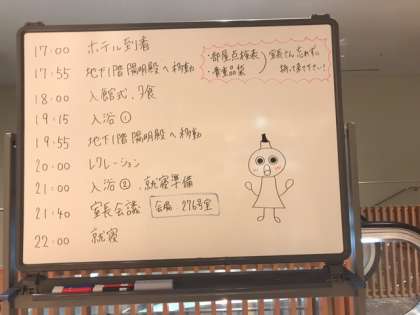 17:00 ホテル到着
17:55 地下1階 陽明殿へ移動
・部屋点検表
・貴重品袋
室長さん忘れずに
持って来て下さい!
18:00 入館式、夕食
19:15 入浴①
19:55 地下1階 陽明殿へ移動
20:00 レクレーション
21:00 入浴②、就寝準備
21:40 室長会議 会場 276号室
22:00 就寝